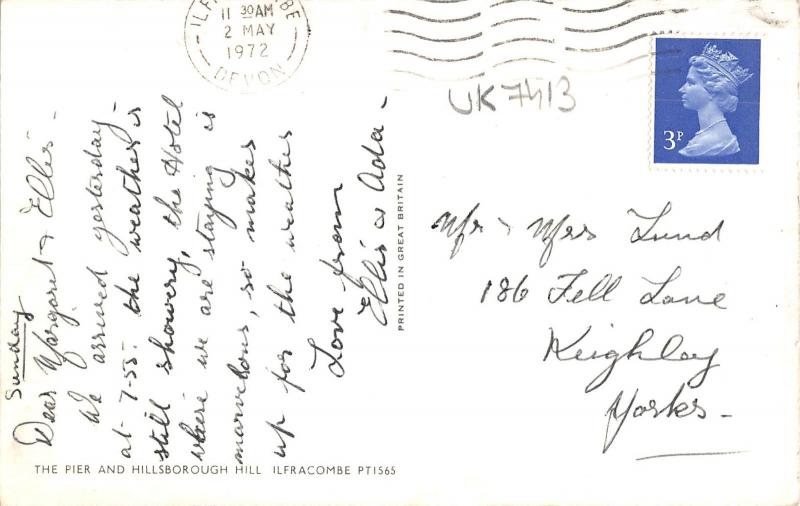 ILFRACOMBE
11 30 AM
2 MAY
1972
DEVON
3P
UK7413
Sunday
Dear Margaret & Ellis -
We arrived yesterday -
at 7-55 - the weather is
still showery, the Hotel
where we are staying is
marvelous, so makes
up for the weather
Love from
Ellis & Ada -
PRINTED IN GREAT BRITAIN
Mr & Mrs Lund
186 Fell Lane
Keighley
Yorks -
THE PIER AND HILLSBOROUGH HILL ILFRACOMBE PT1565